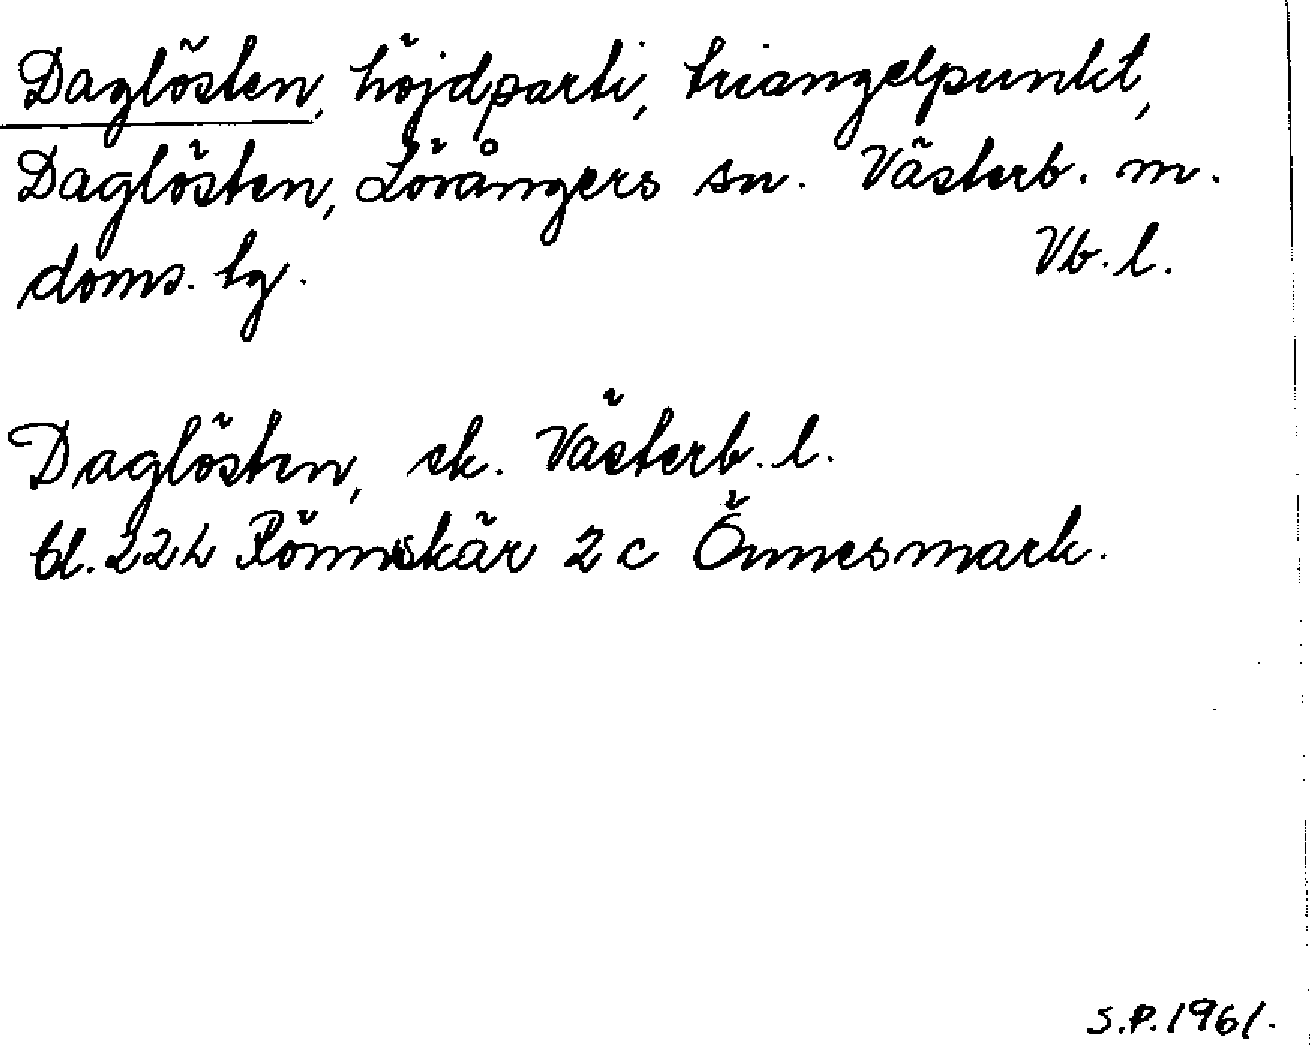 Daglösten, höjdparti, triangelpunkt,
Daglösten, Lövångers sn. Västerb. m.
doms. lg. Vb. l.
Daglösten, ek. Västerb. l.
bl. 22L Rönnskär 2c Önnesmark.
S.P. 1961.